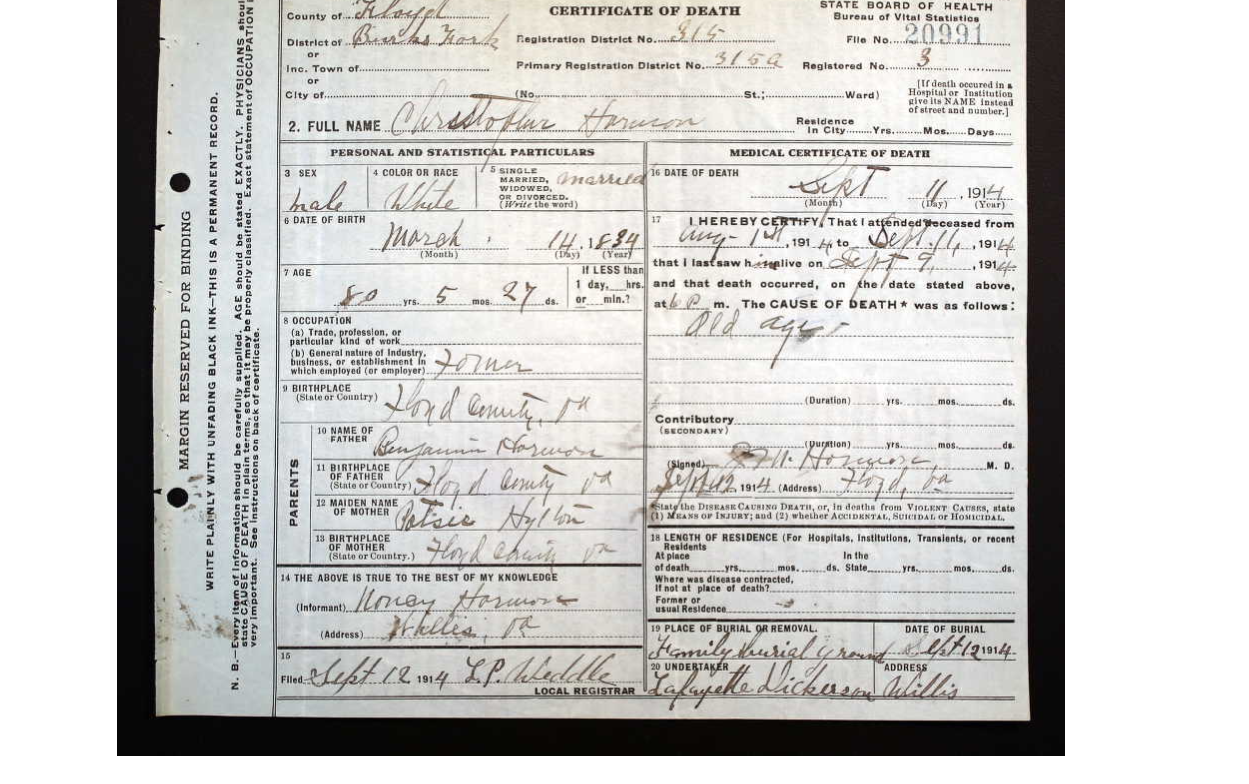 STATE BOARD OF HEALTH
County of Floyd
CERTIFICATE OF DEATH
Bureau of Vital Statistics
District of Burks Fork
Registration District No. 315
File No. 20991
or
Inc. Town of
Primary Registration District No. 315a
Registered No. 3
or
City of
(No. St.; Ward)
[If death occured in a Hospital or Institution give its NAME instead of street and number.]
2. FULL NAME Christopher Harmon
Residence In City Yrs. Mos. Days
PERSONAL AND STATISTICAL PARTICULARS
3 SEX
male
4 COLOR OR RACE
White
5 SINGLE MARRIED, WIDOWED, OR DIVORCED. (Write the word)
married
6 DATE OF BIRTH
March 14, 1834
(Month) (Day) (Year)
7 AGE
80 yrs. 5 mos. 27 ds.
If LESS than 1 day, hrs. or min.?
8 OCCUPATION
(a) Trade, profession, or
particular kind of work
(b) General nature of Industry,
business, or establishment in
which employed (or employer) Farmer
9 BIRTHPLACE
(State or Country) Floyd County, Va
PARENTS
10 NAME OF FATHER Benjamin Harmon
11 BIRTHPLACE OF FATHER (State or Country) Floyd County Va
12 MAIDEN NAME OF MOTHER Patsie Hylton
13 BIRTHPLACE OF MOTHER (State or Country.) Floyd County Va
14 THE ABOVE IS TRUE TO THE BEST OF MY KNOWLEDGE
(Informant) Harmon
(Address) Willis, Va
15
Filed Sept 12 1914 L.P. Weddle
LOCAL REGISTRAR
MEDICAL CERTIFICATE OF DEATH
16 DATE OF DEATH
Sept 11, 1914
(Month) (Day) (Year)
17 I HEREBY CERTIFY, That I attended deceased from
Aug 1st, 1914 to Sept. 11, 1914
that I last saw him alive on Sept 9, 1914
and that death occurred, on the date stated above,
at 6 P m. The CAUSE OF DEATH* was as follows:
Old age
(Duration) yrs. mos. ds.
Contributory
(SECONDARY)
(Duration) yrs. mos. ds.
(Signed) Harmon, M. D.
Sept 12, 1914 (Address) Floyd, Va
*State the DISEASE CAUSING DEATH, or, in deaths from VIOLENT CAUSES, state
(1) MEANS OF INJURY; and (2) whether ACCIDENTAL, SUICIDAL or HOMICIDAL.
18 LENGTH OF RESIDENCE (For Hospitals, Institutions, Transients, or recent
Residents
At place of death yrs. mos. ds. In the State yrs. mos. ds.
Where was disease contracted,
if not at place of death?
Former or
usual Residence
19 PLACE OF BURIAL OR REMOVAL.
Family burial ground
DATE OF BURIAL
Sept 12 1914
20 UNDERTAKER
Lafayette Dickerson
ADDRESS
Willis
MARGIN RESERVED FOR BINDING
WRITE PLAINLY WITH UNFADING BLACK INK—THIS IS A PERMANENT RECORD.
N. B.—Every item of information should be carefully supplied. AGE should be stated EXACTLY. PHYSICIANS shoul
state CAUSE OF DEATH in plain terms, so that it may be properly classified. Exact statement of OCCUPATION
very important. See instructions on back of certificate.